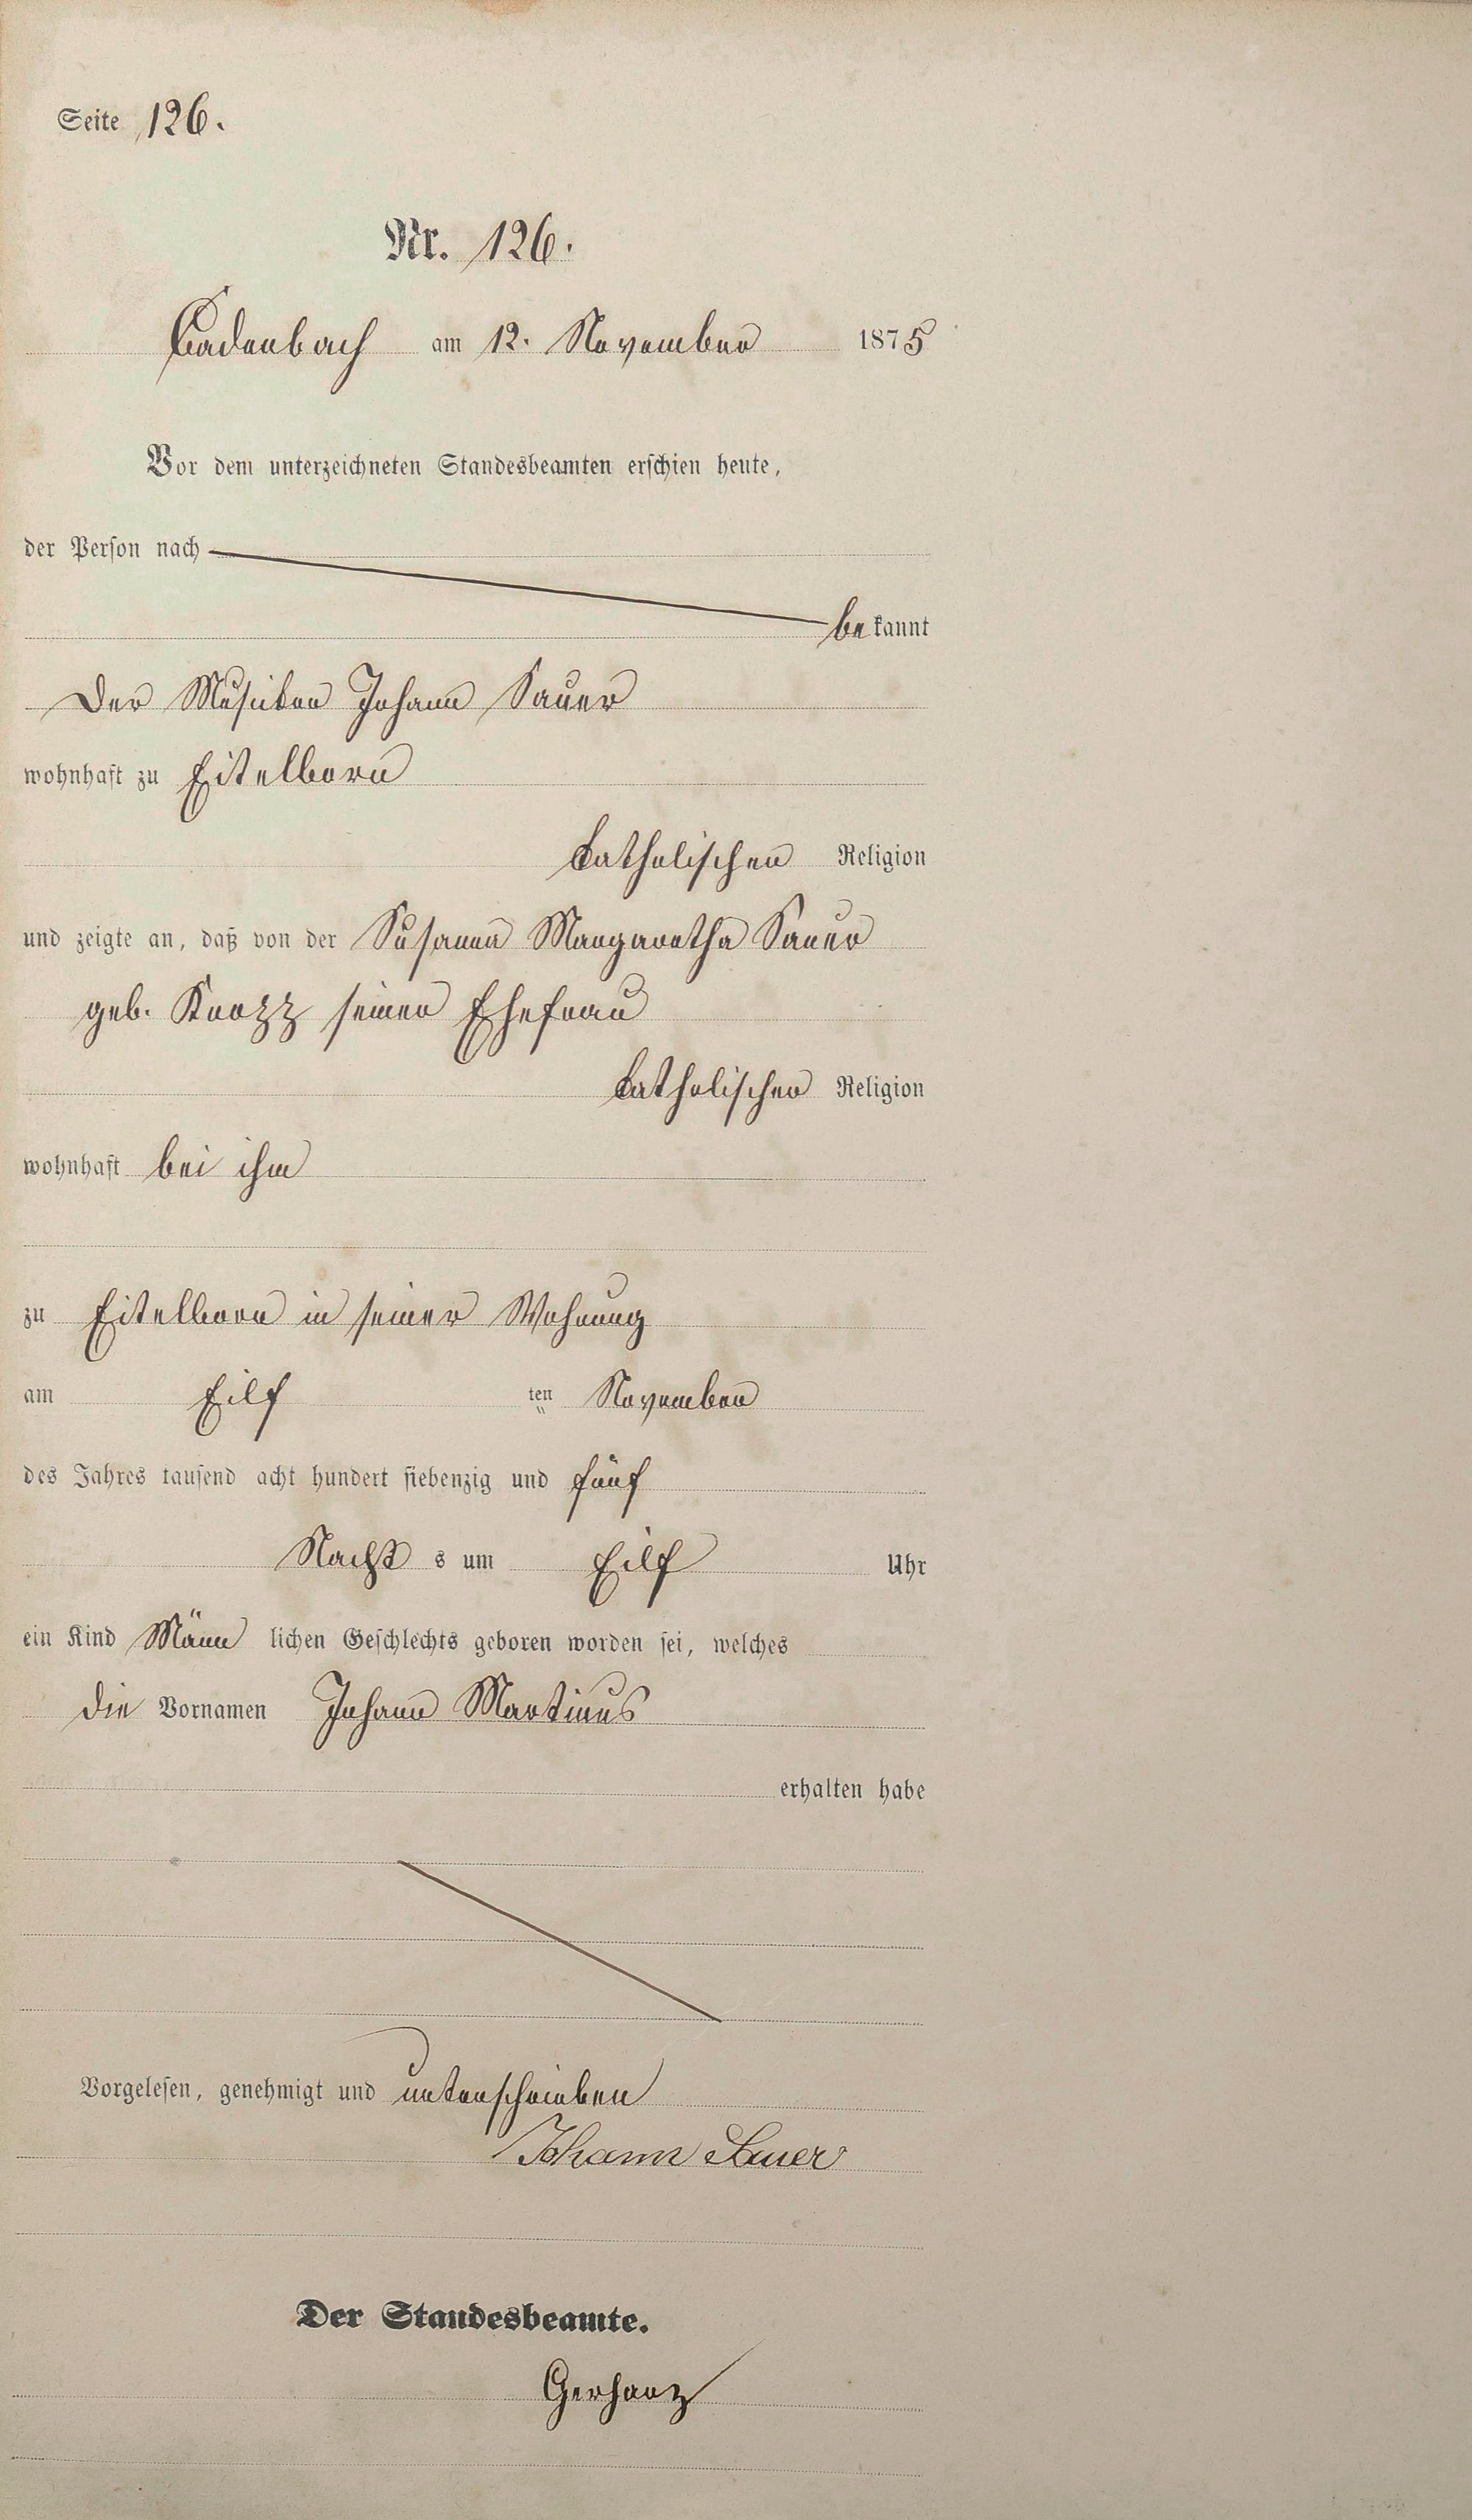 Seite 126.
Nr. 126.
Cadenbach am 12. November 1875
Vor dem unterzeichneten Standesbeamten erschien heute,
der Person nach
bekannt
Der Musiker Johann Sauer
wohnhaft zu Eitelborn
katholischen Religion
und zeigte an, daß von der Susanna Margaretha Sauer
geb. seiner Ehefrau
katholischer Religion
wohnhaft bei ihm
zu Eitelborn in seiner Wohnung
am Eilf ten November
des Jahres tausend acht hundert siebenzig und fünf
Nacht s um Eilf Uhr
ein Kind Männ lichen Geschlechts geboren worden sei, welches
die Vornamen Johann Martinus
erhalten habe
Vorgelesen, genehmigt und unterschrieben
Johann Sauer
Der Standesbeamte.
Gerharz